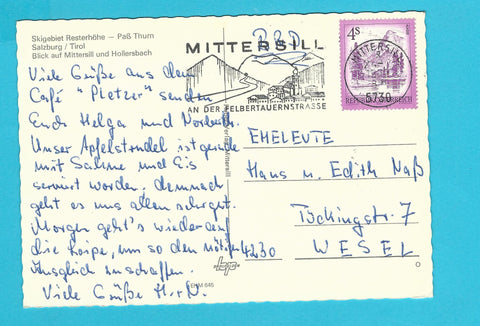 Skigebiet Resterhöhe – Paß Thurn
Salzburg / Tirol
Blick auf Mittersill und Hollersbach
BRD
MITTERSILL
AN DER FELBERTAUERNSTRASSE
4S
REPUBLIK ÖSTERREICH
MITTERSILL
5730
Viele Grüße aus dem
Café "Pletzer" senden
Euch Helga und Norbert.
Unser Apfelstrudel ist gerade
mit Sahne und Eis
serviert worden, demnach
geht es uns allen sehr gut.
Morgen geht's wieder auf
die Loipe, um so den nötigen
Ausgleich zu schaffen.
Viele Grüße H+N.
EHELEUTE
Hans u. Edith Naß
7
4230 WESEL
EHM 645